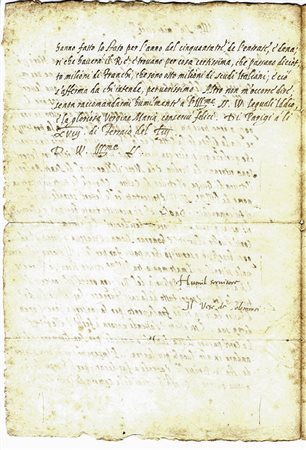 hanno fatto lo stato per l'anno del cinquantetre de l'entrate, e dena
ri che haverà il Re, e trovano per cosa certissima, che passano deciott
o milioni di franchi, che sono otto milioni di scudi Italiani, e ciò
s'afferma da chi intende, per verissimo. Altro non m'occorre dire,
senon raccomandarmi humilmente a l'Illme SS. VV. le quali Iddio,
e la gloriosa Vergine Maria conservi felici. Di Parigi a li
XVIJ. di Feraio del LIIJ
D. V. Illme SS
Humil servidore
Il Vesc. di